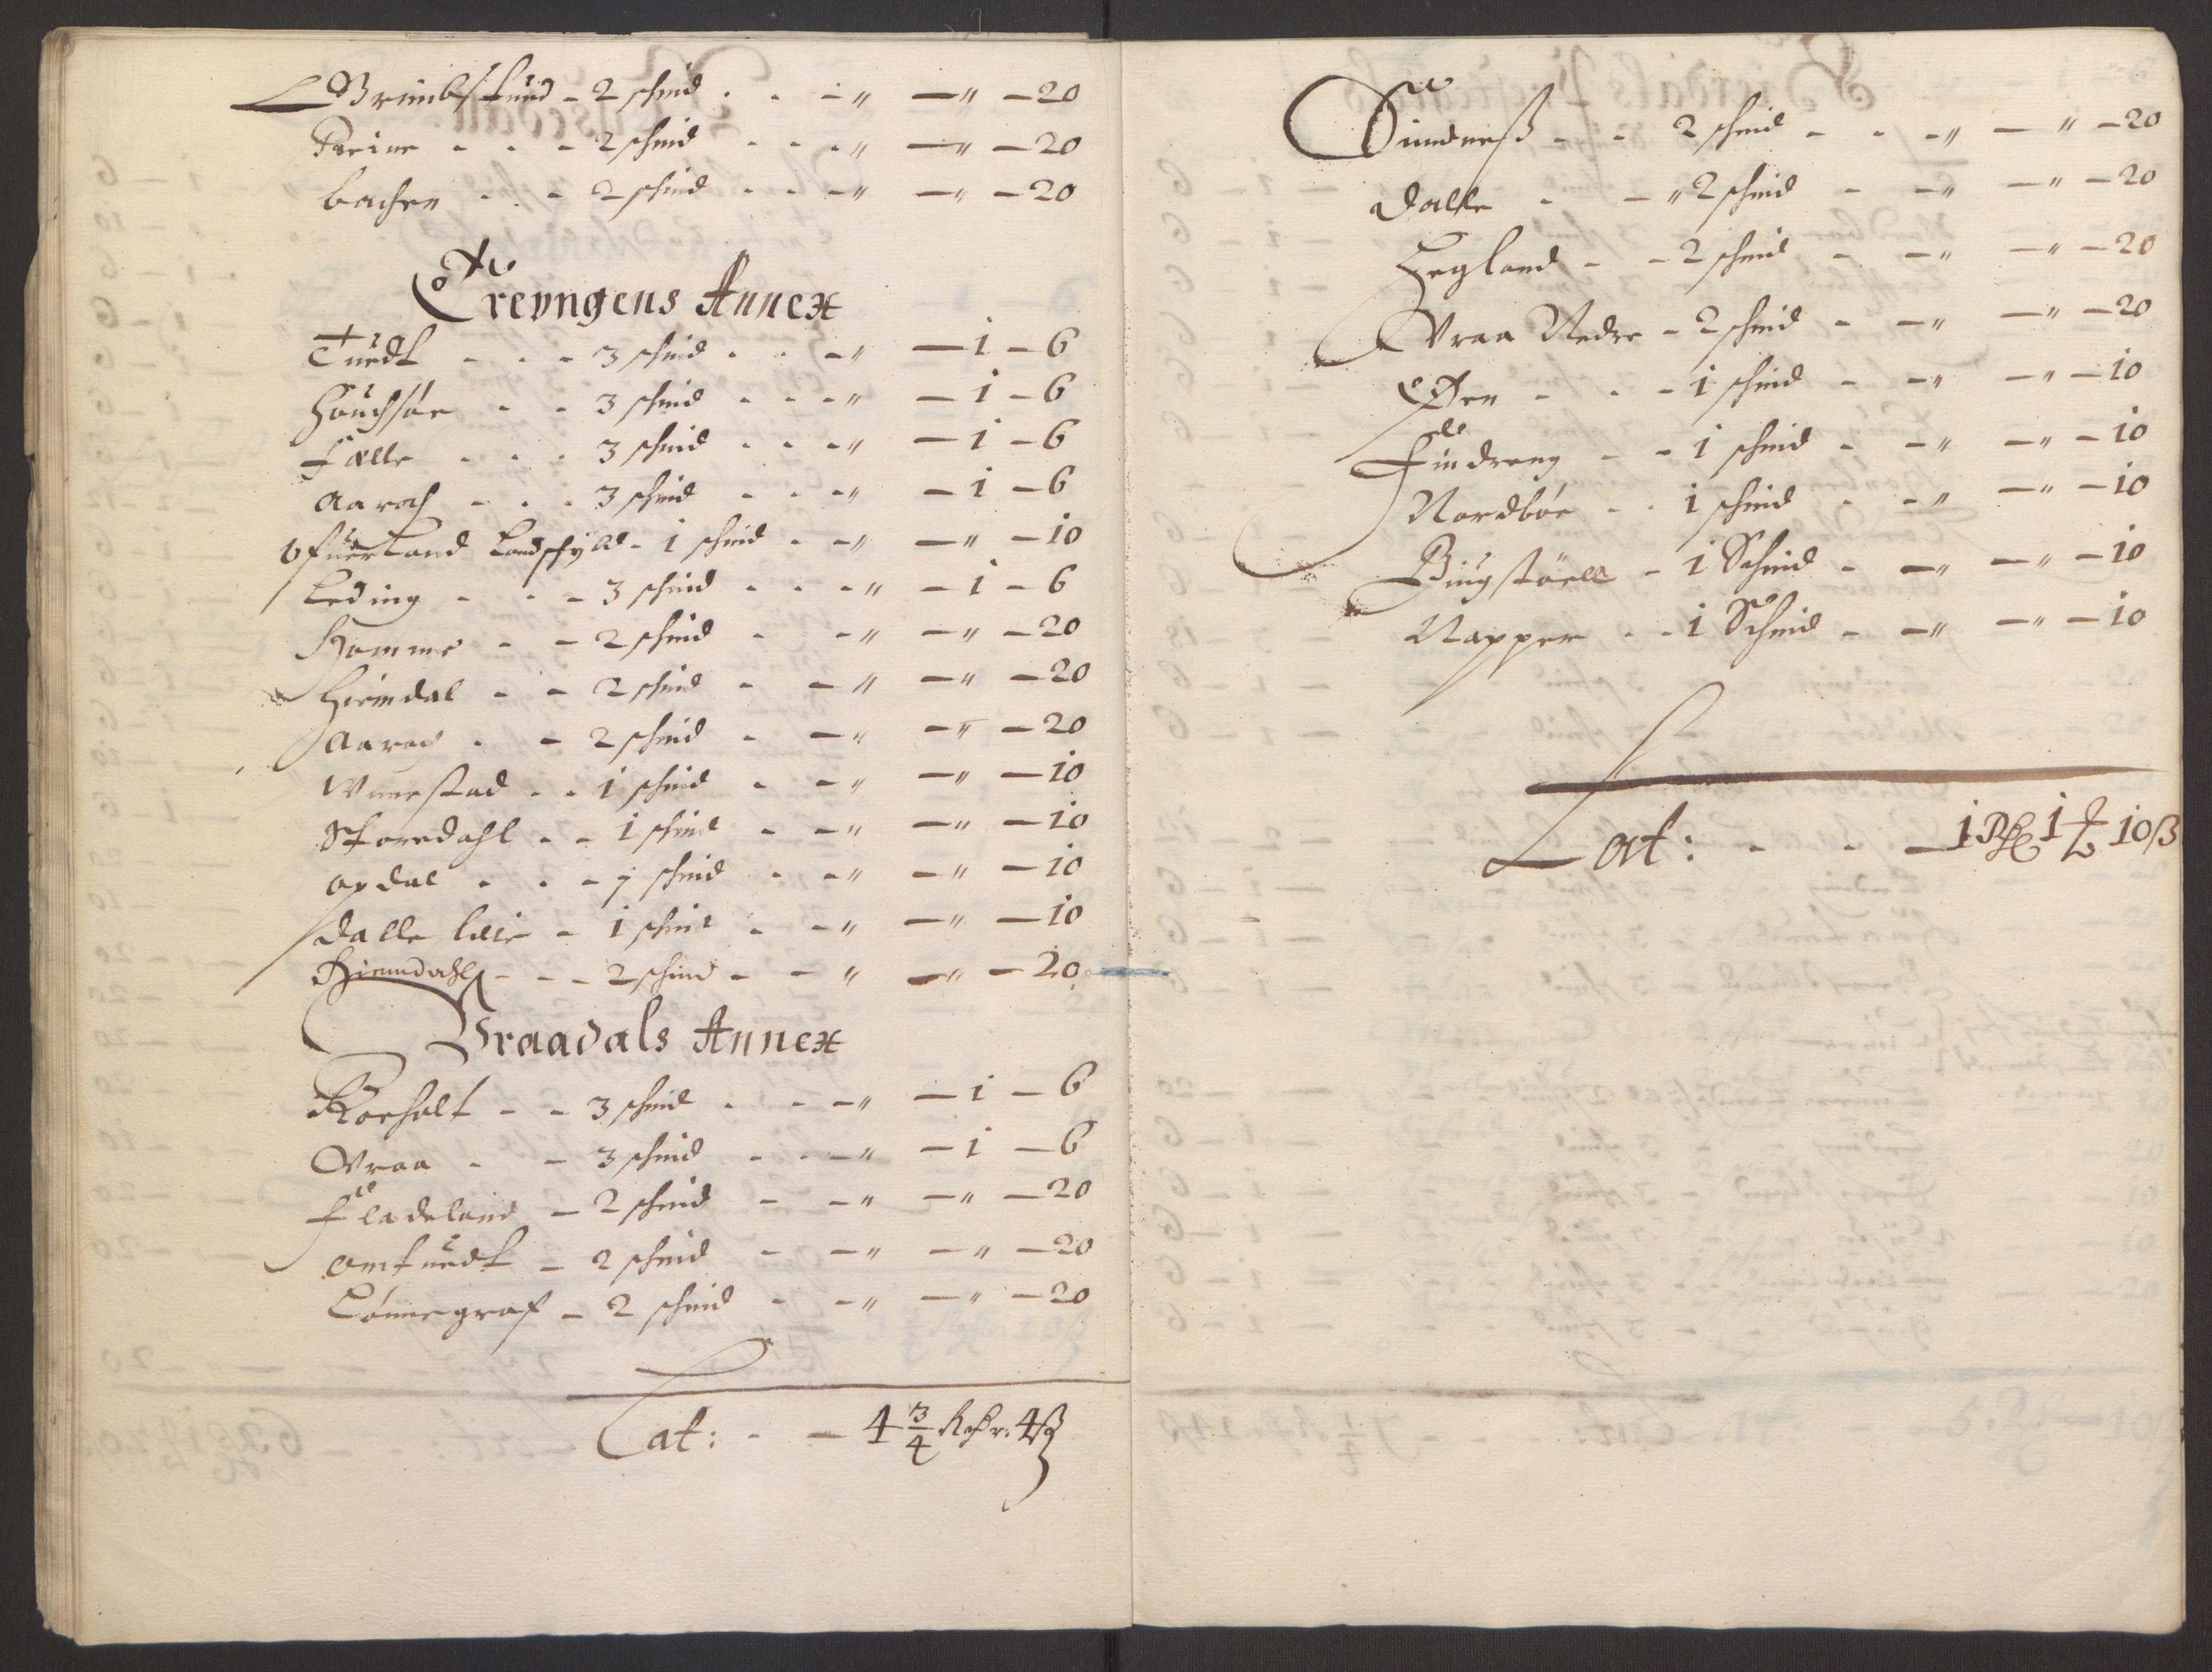 Brunbstund - 2 schind . . - " — " — 20
Treine - - - 2 schind - - - " — " — 20
bachen - . - 2 schind - - - " — " — 20
Treungens Annex
Tuedt - - - 3 schind . . - " — 1 — 6
Houchsöe - - 3 schind - - - " — 1 — 6
Fælle - - . 3 schind - - - " — 1 — 6
Aaroch - - . 3 schind - - - " — 1 — 6
Landschyld - 1 schind - - " — " — 10
Leding - - - 3 schind - - - " — 1 — 6
Homme - - 2 schind - - " — " — 20
Heimdal - - 2 schind - - " — " — 20
Aaroe . - 2 schind - - " — " — 20
Wuerstad - - 1 schind - - " — " — 10
Storedahl - - 1 schind - - " — " — 10
Opdal - - - j schind - - " — " — 10
Dalle læie - 1 schind - - " — " — 10
Hiemdahl - - - 2 schind - - " — " — 20
Vraadals Annex
Roeholt - - 3 schind - - - " — 1 — 6
Vraa - - 3 schind - - - " — 1 — 6
Fladeland - 2 schind - - " — " — 20
Omtuedt - 2 schind - - " — " — 20
Lönnegraf - 2 schind - - " — " — 20
Lat: - - 4 3/4 Rchr: 4 β
Sundness - - 2 schind - - - " — " — 20
Dalle - - " 2 schind - - " — " — 20
Hegland - - 2 schind - - " — " — 20
Vraa Nedre - 2 schind - - " — " — 20
Öen - - - 1 schind - - " — " — 10
Findreng - - 1 schind - - " — " — 10
Nordböe - - 1 schind - - " — " — 10
Biugstöell - 1 Schind - - " — " — 10
Napper - - 1 Schind - - " — " — 10
Lat: - - — 1 Rd 1 ₰ 10 β